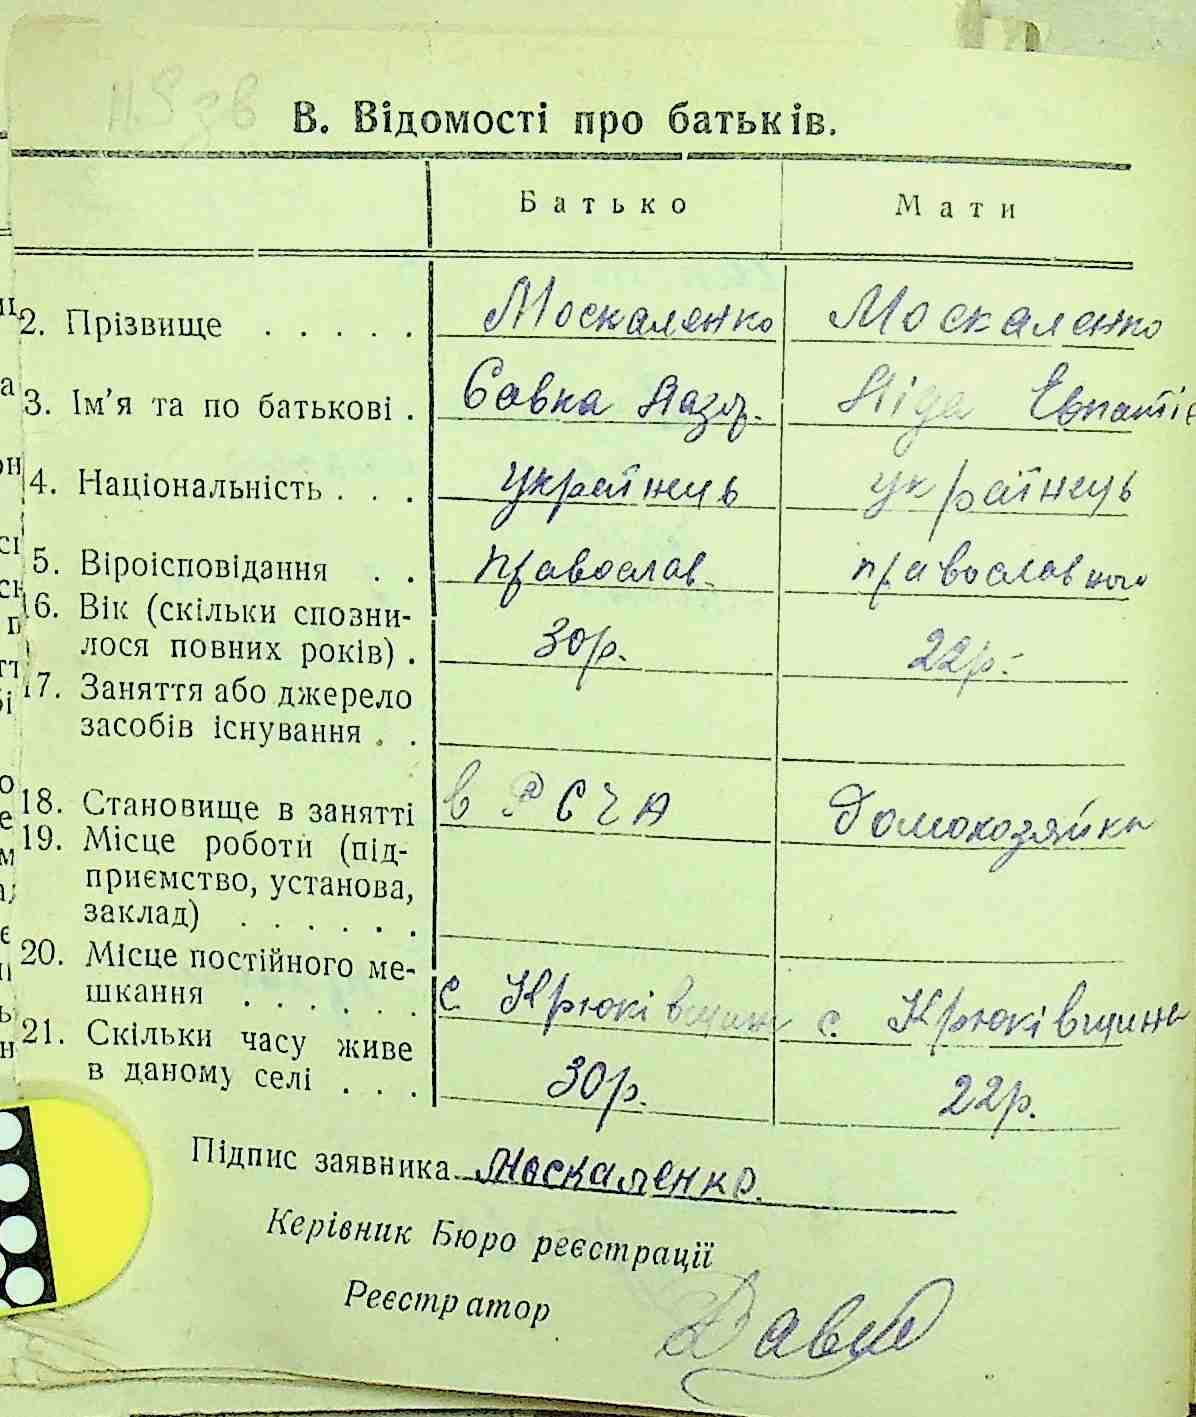 В. Відомості про батьків.
Батько Мати
12. Прізвище . . . . . Москаленко Москаленко
13. Ім'я та по батькові . Савка Назар. Ліда Евпатіє
14. Національність . . . українець українець
15. Віроісповідання . . православ. православного
16. Вік (скільки спозни-
лося повних років) . 30р. 22р.
17. Заняття або джерело
засобів існування . .
18. Становище в занятті в РСЧА Домохозяйка
19. Місце роботи (під-
приємство, установа,
заклад) . . . . . .
20. Місце постійного ме-
шкання . . . . . . с. Крюківщина с. Крюківщина
21. Скільки часу живе
в даному селі . . . 30р. 22р.
Підпис заявника Москаленко.
Керівник Бюро реєстрації
Реєстратор